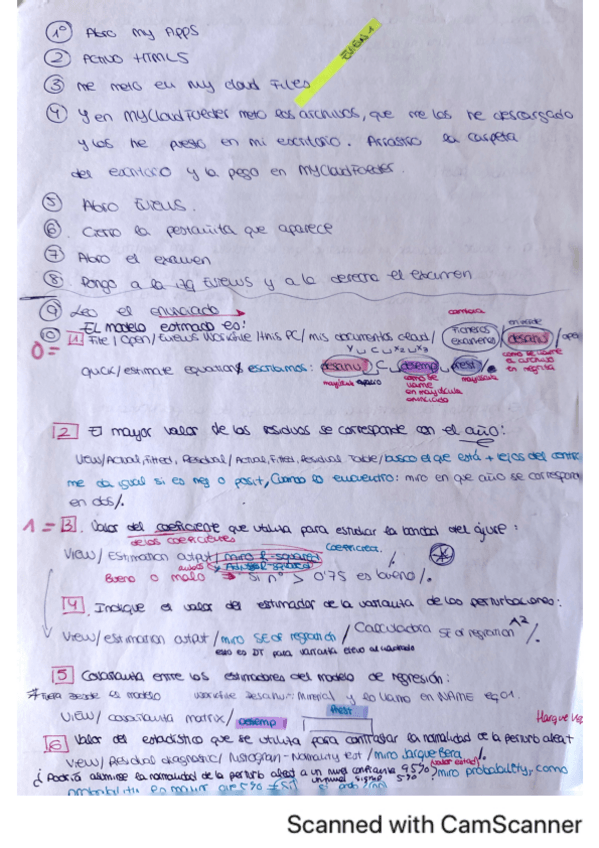 1º Abro my Apps
EVIEWS 1
2 Activo HTML5
3 me meto en my cloud Files
4 Y en MYCloudFoeder meto los archivos, que me los he descargado
y los he puesto en mi escritorio. Arrastro la carpeta
del escritorio y la pego en MYCloudFoeder.
5 Abro Eviews.
6 Cierro la pestañita que aparece
7 Abro el examen
8 Pongo a la izq Eviews y a la derecha el examen
9 Leo el enunciado
10 EL modelo estimado es:
0= 1 File / Open / Eviews Workfile / this PC / mis documentos cloud / Ficheros examenes / desanu / open
Y ⌴ C ⌴ X2 ⌴ X3
como se llama el archivo en negrita
quick/estimate equation/ escribimos: desanu ⌴ C ⌴ desemp ⌴ prest /.
mayúscula espacio
como se llame en mayúscula enunciado
mayúscula
2 El mayor valor de los residuos se corresponde con el año:
View/Actual, Fitted, Residual / Actual, Fitted, Residual Table/ busco el que está + lejos del centro
me da igual si es neg o posit, Cuando lo encuentro: miro en que año se corresponde
en obs/.
1= 3. Valor del coeficiente que utiliza para estudiar la bondad del ajuste:
de los coeficientes
View / Estimation output / miro R-square
Adjusted R-square
Bueno o malo → Si nº > 0'75 es bueno /.
4. Indique el valor del estimador de la varianza de las perturbaciones:
View/ estimation output / miro SE of regression / Calculadora SE of regression ^2 /.
esto es DT para varianza elevo al cuadrado
5 Covarianza entre los estimadores del modelo de regresión:
View/ covariance matrix/ desemp
Prest
6 Valor del estadístico que se utiliza para contrastar la normalidad de la perturb aleat
View/ Residual diagnostic/ Histogram - Normality test / miro Jarque Bera /.
(valor estad)
¿Podría asumirse la normalidad de la perturb aleat a un nivel confianza 95%? miro probability, como
un nivel signif 5%
probabilidad es mayor que 5%
Scanned with CamScanner